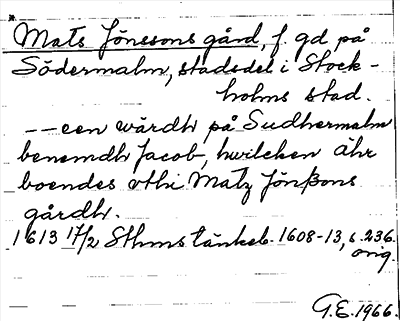 Mats Jönssons gård, f. gd på
Södermalm, stadsdel i Stock-
holms stad.
-- een wärdh på Sudhermalm
benemdh Jacob, hwilchen ähr
boendes vthi Matz Jönßons
gårdh.
1613 17/2 Sthms tänkeb. 1608-13, s. 236.
orig.
G.E. 1966.